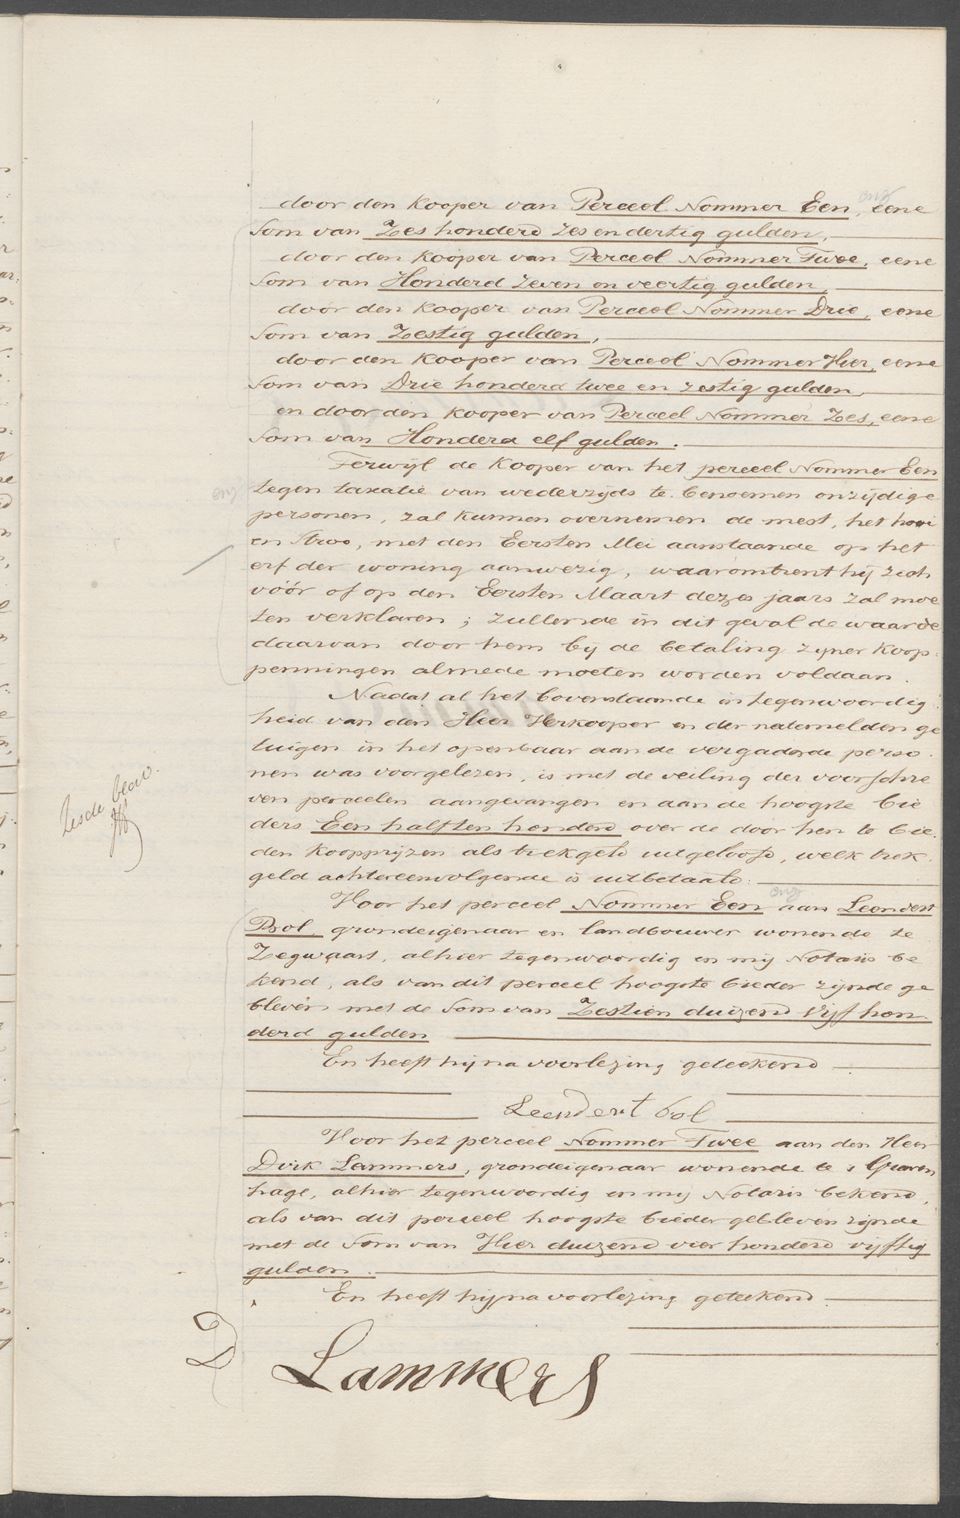 door den kooper van Perceel Nommer Een, eene
som van Zes honderd zes en dertig gulden,
door den kooper van Perceel Nommer Twee, eene
som van Honderd zeven en veertig gulden,
door den kooper van Perceel Nommer Drie, eene
som van Zestig gulden,
door den kooper van Perceel Nommer Vier, eene
som van Drie honderd twee en zestig gulden
en door den kooper van Perceel Nommer Zes, eene
som van Honderd elf gulden.
Terwijl de kooper van het perceel Nommer Een
tegen taxatie van wederzijds te benoemen onzijdige
personen, zal kunnen overnemen de mest, het hooi
en stroo, met den Eersten Mei aanstaande op het
erf der woning aanwezig, waaromtrent hij zich
vóór of op den Eersten Maart dezes jaars zal moe
ten verklaren; zullende in dit geval de waarde
daarvan door hem bij de betaling zijner koop-
penningen almede moeten worden voldaan.
Nadat al het bovenstaande in tegenwoordig
heid van den Heer Verkooper en der natemelden ge
tuigen in het openbaar aan de vergaderde perso
nen was voorgelezen, is met de veiling der voorschre
ven perceelen aangevangen en aan de hoogste bie
ders Een half ten honderd over de door hen te bie
den koopprijzen als trekgeld uitgeloofd, welk trek
geld achtereenvolgende is uitbetaald:
Zesde blad.
Voor het perceel Nommer Een aan Leendert
Bol, grondeigenaar en landbouwer wonende te
Zegwaart, alhier tegenwoordig en mij Notaris be
kend, als van dit perceel hoogste bieder zijnde ge
bleven met de som van Zestien duizend vijf hon
derd gulden
En heeft hij na voorlezing geteekend
Leendert bol
Voor het perceel Nommer Twee aan den Heer
Dirk Lammers, grondeigenaar wonende te 's Graven
hage, alhier tegenwoordig en mij Notaris bekend,
als van dit perceel hoogste bieder gebleven zijnde
met de som van Vier duizend vier honderd vijftig
gulden.
En heeft hij na voorlezing geteekend.
D Lammers